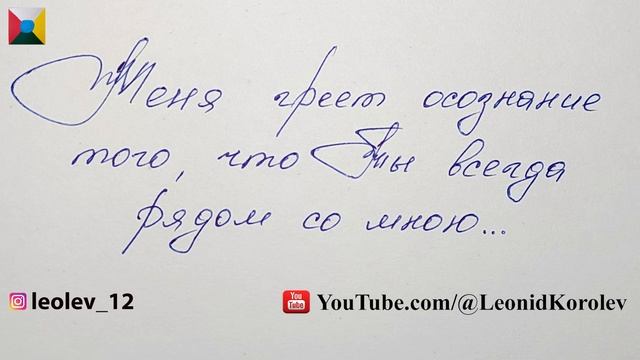 Меня греет осознание
того, что Ты всегда
рядом со мною...
leolev_12
You Tube YouTube.com/@LeonidKorolev